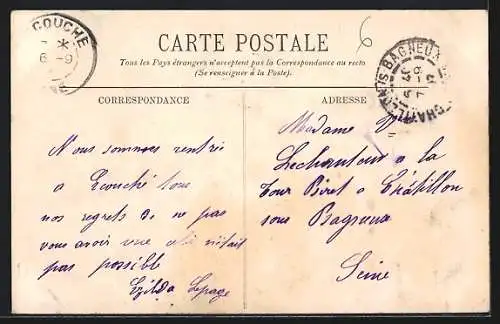 COUCHE
6
CARTE POSTALE
Tous les Pays étrangers n'acceptent pas la Correspondance au recto
(Se renseigner à la Poste).
CORRESPONDANCE
ADRESSE
BAGNEUX
Nous sommes rentré
a Ecouché tous
nos regrets de ne pas
vous avoir vue
pas possible
Ezilda Lepage
Madame
Lechanteur a la
Tour Biret a Châtillon
sous Bagneux
Seine